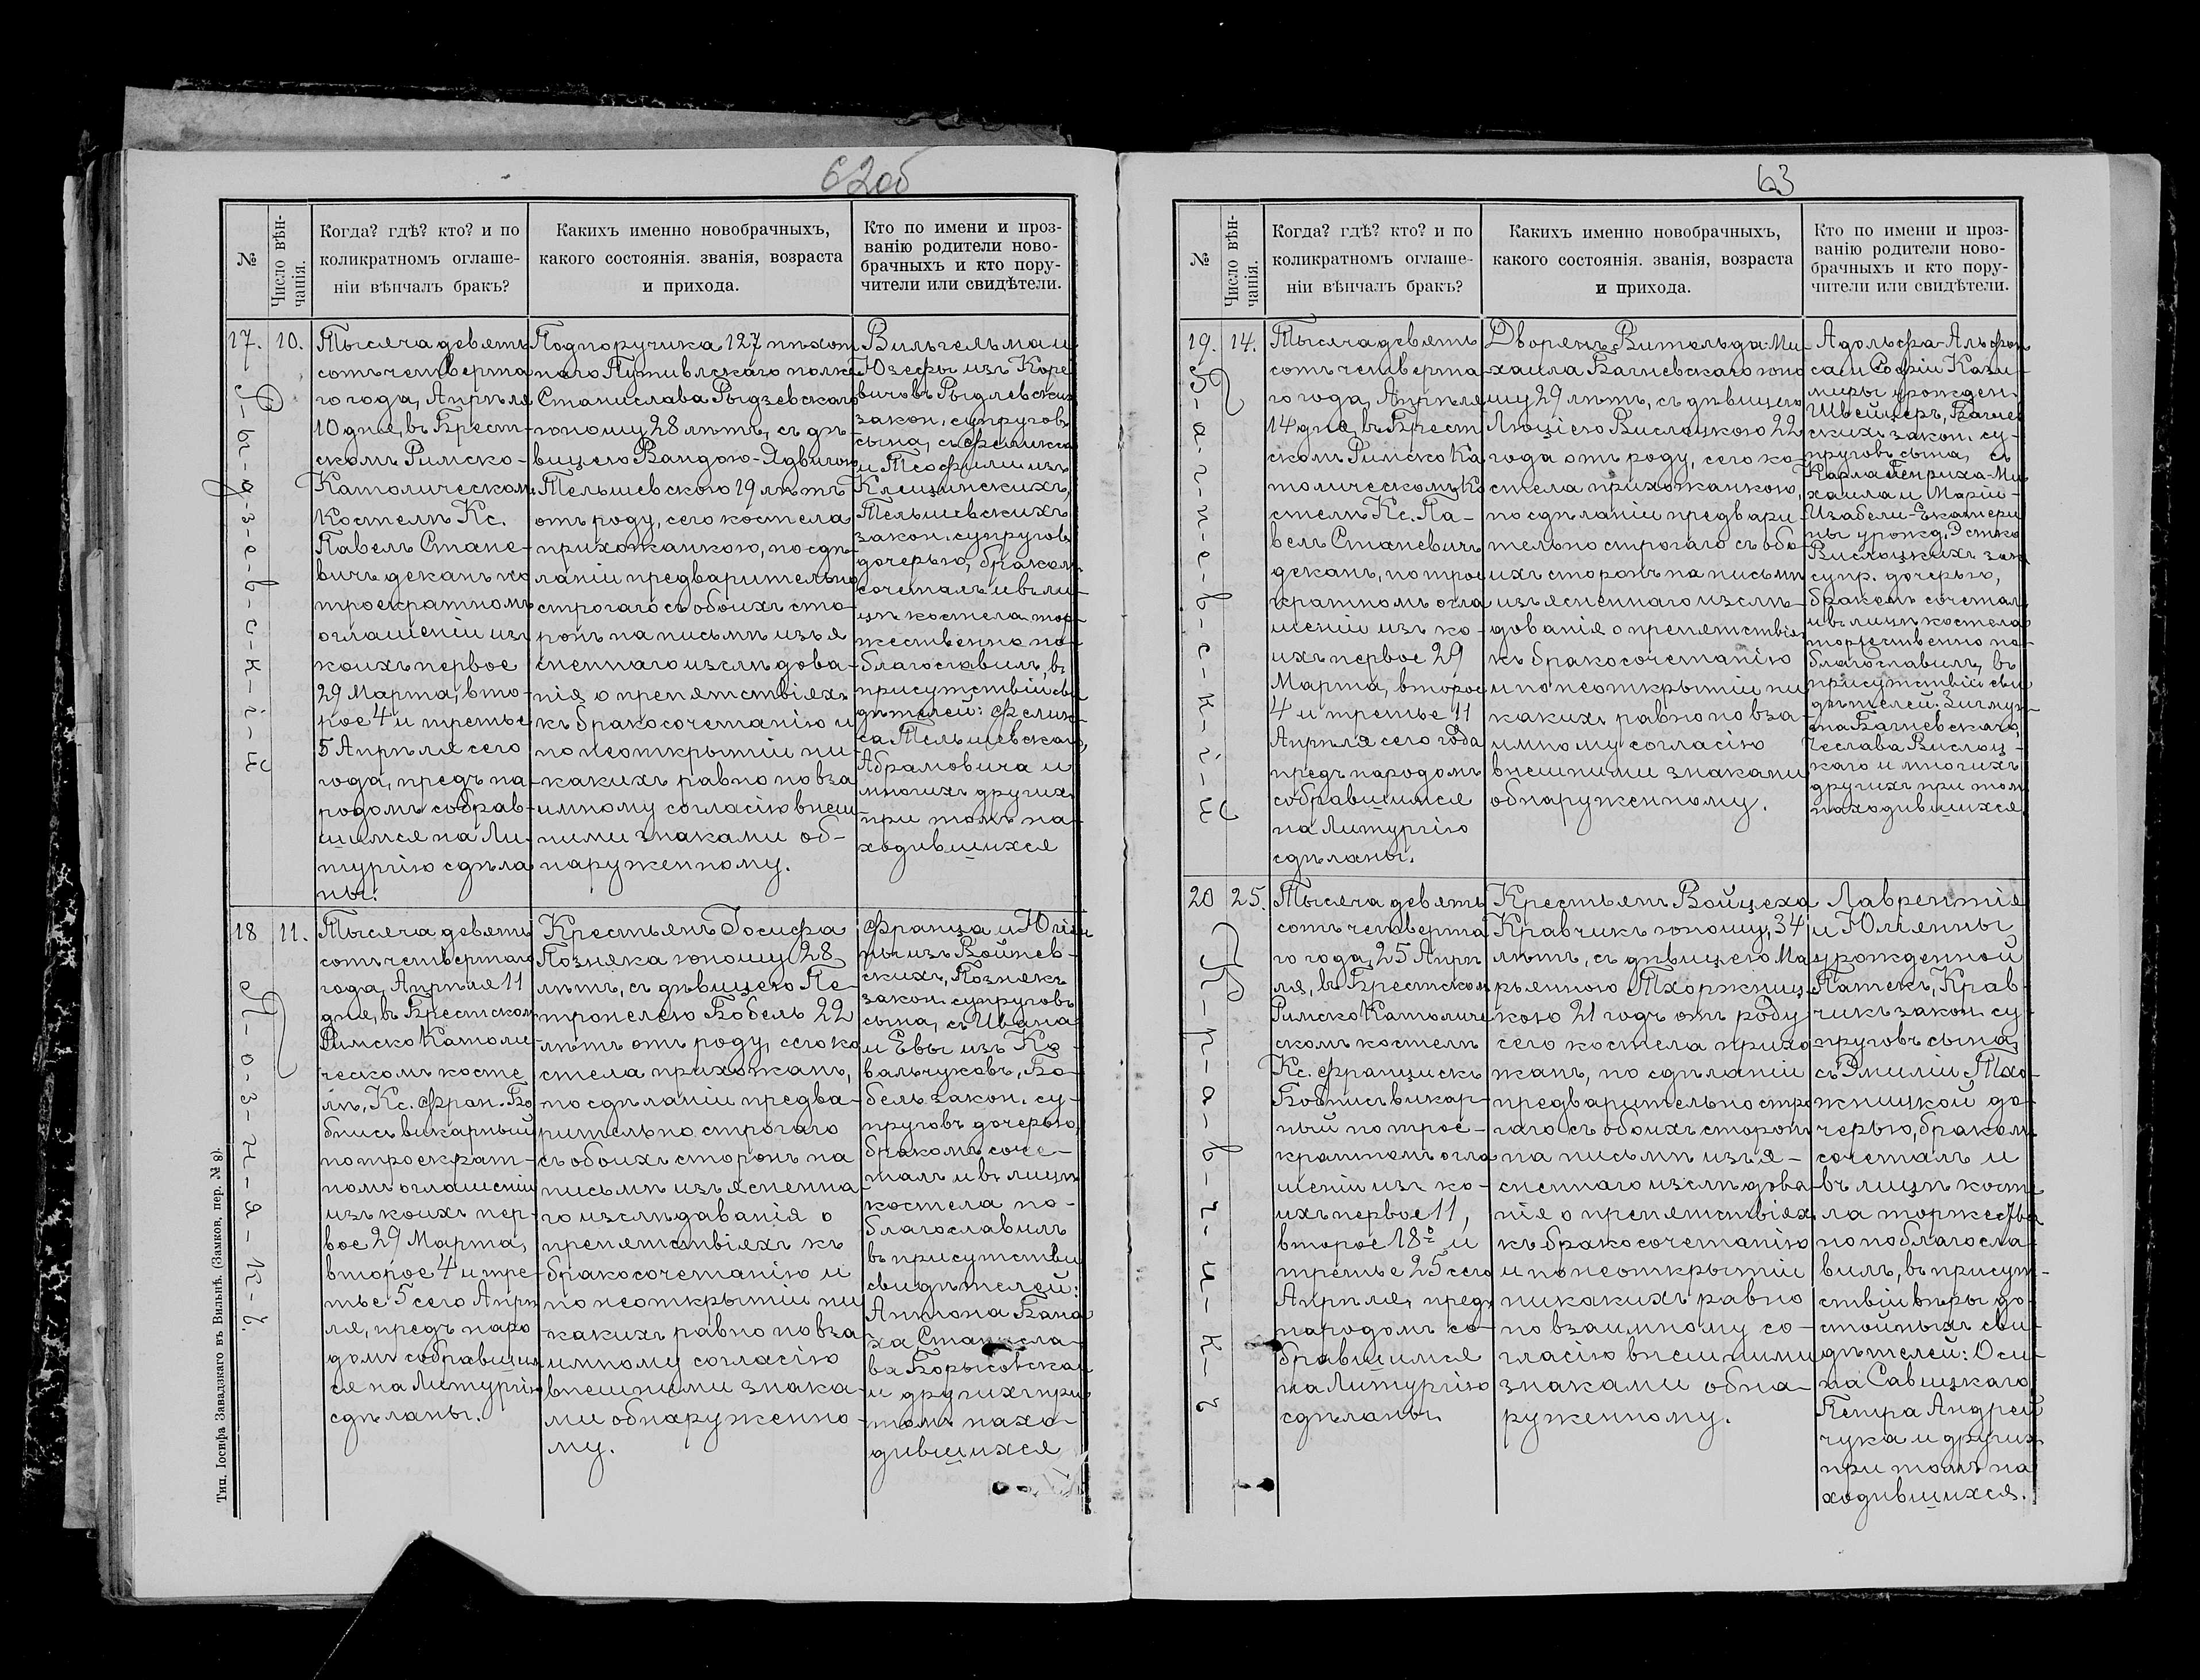 62об
№
Число вѣн-
чанія.
Когда? гдѣ? кто? и по
коликратномъ оглаше-
ніи вѣнчалъ бракъ?
Какихъ именно новобрачныхъ,
какого состоянія. званія, возраста
и прихода.
Кто по имени и проз-
ванію родители ново-
брачныхъ и кто пору-
чители или свидѣтели.
17.
10.
Р-ы-д-з-е-в-с-к-і-й
Тысяча девять
сотъ четверта
го года, Апрѣля
10 дня, въ Брест-
скомъ Римско-
Католическомъ
Костелѣ Кс.
Павелъ Стане-
вичъ деканъ по
троекратномъ
оглашеніи изъ
коихъ первое
29 Марта, вто-
рое 4 и третье
5 Апрѣля сего
года, предъ на-
родомъ собрав-
шимся на Ли-
тургію сдѣла
ны.
Подпоручика 127 пѣхот
наго Путивлскаго полка
Станислава Рыдзевскаго
юношу 28 лѣтъ, съ дѣ-
вицею Вандою-Ядвигою
Тельшевскою 19 лѣтъ
отъ роду, сего костела
прихожанкою, по сдѣ-
ланіи предварительно
строгаго съ обоихъ сто-
ронъ на письмѣ изъя
сненнаго изслѣдова-
нія о препятствіяхъ
къ бракосочетанію и
по неоткрытіи ни-
какихъ равно по вза
имному согласію внеш
ними знаками об-
наруженному.
Вильгельма и
Юзефы изъ Коре
вичовъ Рыдзевских
закон. супруговъ
сына, съ Феликса
и Теофили изъ
Клещинскихъ,
Тельшевскихъ
закон. супругов
дочерью, бракомъ
сочеталъ и въ ли-
цѣ костела тор-
жественно по-
благославилъ, въ
присутствіи сви
дѣтелей: Фелик-
са Тельшевскаго,
Абрамовича и
многихъ другихъ
при томъ на-
ходившихся
18
11.
П-о-з-н-я-к-ъ.
Тысяча девять
сотъ четвертаго
года, Апрѣля 11
дня, въ Брестском
Римско Католи
ческомъ косте
лѣ, Кс. Фран. Бо
бнисъ викарный
по троекрат-
номъ оглашеніи
изъ коихъ пер-
вое 29 Марта,
второе 4 и тре-
тье 5 сего Апрѣ
ля, предъ наро
домъ собравшим
ся на Литургію
сдѣланы.
Крестьянъ Іосифа
Позняка юношу 28
лѣтъ, съ дѣвицею Пе-
тронелею Бобель 22
лѣтъ отъ роду, сего ко
стела прихожанъ,
по сдѣланіи предва-
рительно строгаго
съ обоихъ сторонъ на
письмѣ изъясненна-
го изслѣдаванія о
препятствіяхъ къ
бракосочетанію и
по неоткрытіи ни
какихъ равно по вза
имному согласію
внешними знака-
ми обнаруженно-
му.
Франца и Юлія
ны изъ Войнев-
скихъ, Познякъ
закон. супруговъ
сына, съ Ивана
и Евы изъ Ко-
вальчуковъ, Бо-
бель закон. су-
пруговъ дочерью,
бракомъ соче-
талъ и въ лицѣ
костела по-
благославилъ
въ присутствіи
свидѣтелей:
Антона Бана
ха, Станисла-
ва Борысовска
и другихъ при
томъ нахо-
дившихся
Тип. Іосифа Завадзкаго въ Вильнѣ. (Замков, пер. № 8).
63
№
Число вѣн-
чанія.
Когда? гдѣ? кто? и по
коликратномъ оглаше-
ніи вѣнчалъ бракъ?
Какихъ именно новобрачныхъ,
какого состоянія. званія, возраста
и прихода.
Кто по имени и проз-
ванію родители ново-
брачныхъ и кто пору-
чители или свидѣтели.
19.
14.
Б-а-г-н-е-в-с-к-і-й
Тысяча девять
сотъ четверта
го года, Апрѣля
14 дня, въ Брест
скомъ Римско Ка
толическомъ Ко
стелѣ Кс. Па-
велъ Станевичъ
деканъ, по трое
кратномъ огла
шеніи изъ ко-
ихъ первое 29
Марта, второе
4 и третье 11
Апрѣля сего года
предъ народомъ
собравшимся
на Литургію
сдѣланы.
Дворянъ Витольда-Ми-
хаила Багневскаго юно
шу 29 лѣтъ, съ дѣвицею
Люціею Вислоцкою 22
года отъ роду, сего ко-
стела прихожанкою,
по сдѣланіи предвари-
тельно строгаго съ обо-
ихъ сторонъ на письмѣ
изъясненнаго изслѣ-
дованія о препятствіях
къ бракосочетанію
и по неоткрытіи ни
какихъ равно по вза-
имному согласію
внешними знаками
обнаруженному.
Адольфа-Альфон
са и Софіи Кази-
миры урожден.
Швейцеръ, Багнев
скихъ закон. су-
пруговъ сына, съ
Карла Генриха-Ми
хаила и Маріи-
Изабели-Екатери
ны урожд. Эстко
Вислоцкихъ зак
супр. дочерью,
бракомъ сочетал
и въ лицѣ костела
торжественно по-
благославилъ, въ
присутствіи сви
дѣтелей: Зигмун-
та Багневскаго,
Чеслава Вислоц-
каго и многихъ
другихъ при том
находившихся.
20
25.
К-р-а-в-ч-и-к-ъ
Тысяча девять
сотъ четверта
го года, 25 Апрѣ
ля, въ Брестском
Римско Католиче
скомъ костелѣ
Кс. Францискъ
Бобнисъ викар-
ный по трое-
кратномъ огла
шеніи изъ ко-
ихъ первое 11,
второе 18º и
третье 25 сего
Апрѣля, предъ
народомъ со-
бравшимся
на Литургію
сдѣланы.
Крестьянъ Войцеха
Кравчикъ юношу, 34
лѣтъ, съ дѣвицею Ма
рьянною Тхоржниц-
кою 21 годъ отъ роду
сего костела прихо
жанъ, по сдѣланіи
предварительно стро
гаго съ обоихъ сторонъ
на письмѣ изъя-
сненнаго изслѣдова
нія о препятствіях
къ бракосочетанію
и по неоткрытіи
никакихъ равно
по взаимному со-
гласію внешними
знаками обна-
руженному.
Лаврентія
и Юліянны
урожденной
Патекъ, Крав-
чикъ закон. су-
пруговъ сына,
съ Эмиліи Тхо-
жницкой до-
черью, бракомъ
сочеталъ и
въ лицѣ косте
ла торжестве
но поблагосла-
вилъ, въ присут-
ствіи вѣры до-
стойныхъ сви-
дѣтелей: Оси-
па Савицкаго
Петра Андрей
чука и другихъ
при томъ на
ходившихся.